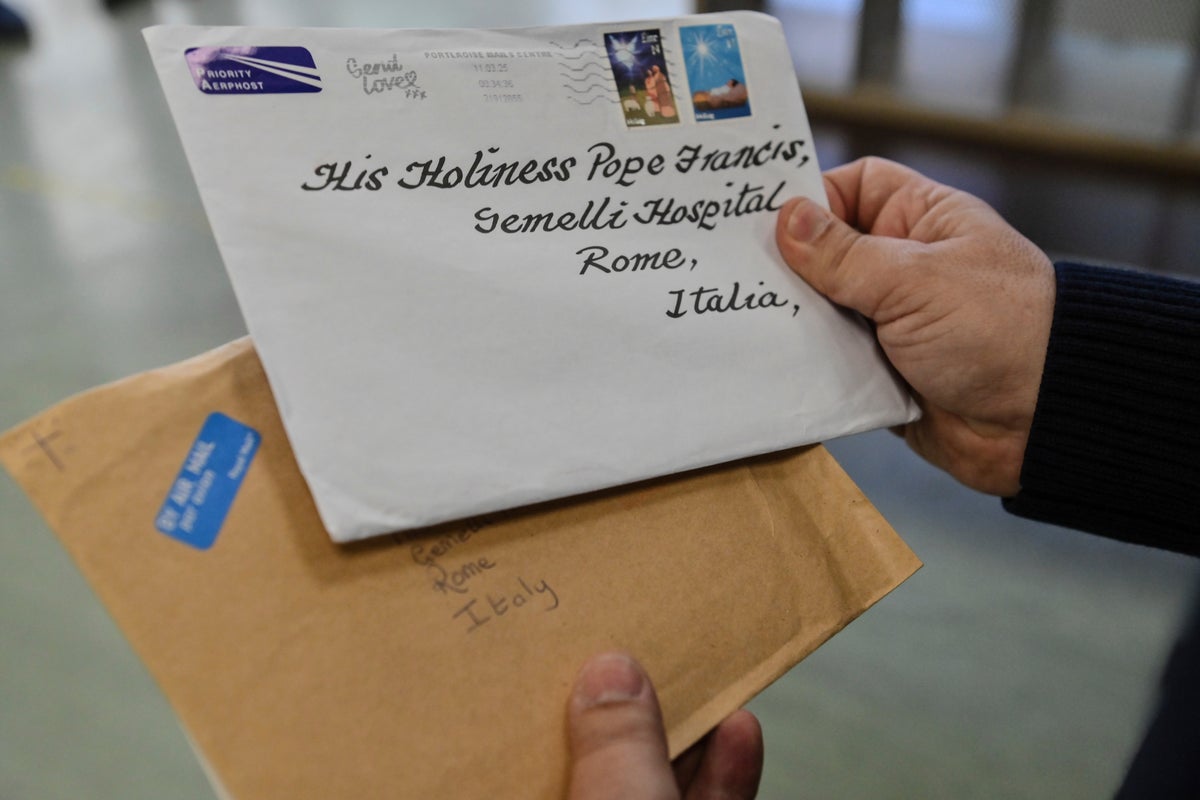 PRIORITY
AERPHOST
Send
love
xxx
PORTLAOISE MAILS CENTRE
11.03.25
Éire
N
Éire
N
His Holiness Pope Francis,
Gemelli Hospital
Rome,
Italia,
BY AIR MAIL
par avion
Royal Mail
Gemelli
Rome
Italy